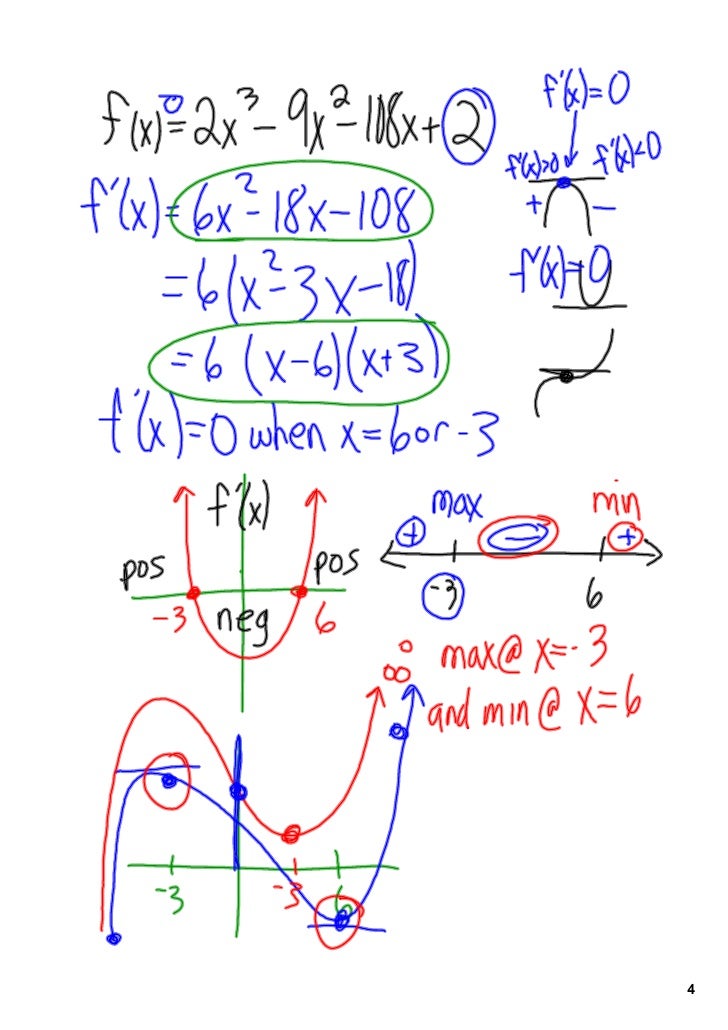 f(x)=2x³-9x²-108x+2
0
f'(x)=0
f'(x)>0 f'(x)<0
+ −
f'(x)=6x²-18x-108
=6(x²-3x-18)
f'(x)=0
=6(x-6)(x+3)
f'(x)=0 when x=6 or -3
f'(x)
max min
+ − +
pos pos
-3 neg 6
-3 6
∴ max@ x=-3
and min@ x=6
-3 -3 6
4